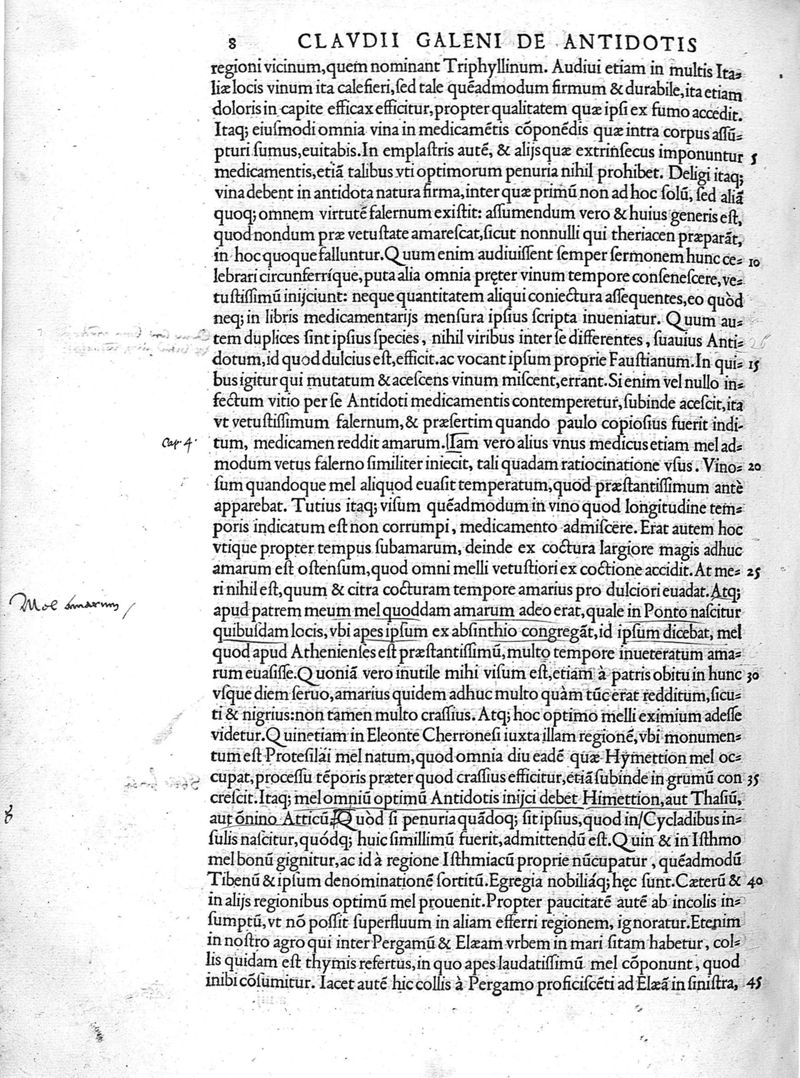 8 CLAVDII GALENI DE ANTIDOTIS
regioni vicinum, quem nominant Triphyllinum. Audiui etiam in multis Ita=
liæ locis vinum ita calefieri, sed tale quẽadmodum firmum & durabile, ita etiam
doloris in capite efficax efficitur, propter qualitatem quæ ipsi ex fumo accedit.
Itaq; eiusmodi omnia vina in medicamẽtis cõponẽdis quæ intra corpus assũ=
pturi sumus, euitabis. In emplastris autẽ, & alijs quæ extrinsecus imponuntur 5
medicamentis, etiã talibus vti optimorum penuria nihil prohibet. Deligi itaq;
vina debent in antidota natura firma, inter quæ primũ non ad hoc solũ, sed aliã
quoq; omnem virtutẽ falernum existit: assumendum vero & huius generis est,
quod nondum præ vetustate amarescat, sicut nonnulli qui theriacen præparãt,
in hoc quoque falluntur. Quum enim audiuissent semper sermonem hunc ce= 10
lebrari circunferríque, puta alia omnia pręter vinum tempore consenescere, ve=
tustissimũ inijciunt: neque quantitatem aliqui coniectura assequentes, eo quòd
neq; in libris medicamentarijs mensura ipsius scripta inueniatur. Quum au=
tem duplices sint ipsius species, nihil viribus inter se differentes, suauius Anti=
dotum, id quod dulcius est, efficit. ac vocant ipsum proprie Faustianum. In qui= 15
bus igitur qui mutatum & acescens vinum miscent, errant. Si enim vel nullo in=
fectum vitio per se Antidoti medicamentis contemperetur, subinde acescit, ita
vt vetustissimum falernum, & præsertim quando paulo copiosius fuerit indi-
Cap 4. tum, medicamen reddit amarum. Iam vero alius vnus medicus etiam mel ad=
modum vetus falerno similiter iniecit, tali quadam ratiocinatione vsus. Vino= 20
sum quandoque mel aliquod euasit temperatum, quod præstantissimum antè
apparebat. Tutius itaq; visum quẽadmodum in vino quod longitudine tem=
poris indicatum est non corrumpi, medicamento admiscere. Erat autem hoc
vtique propter tempus subamarum, deinde ex coctura largiore magis adhuc
amarum est ostensum, quod omni melli vetustiori ex coctione accidit. At me= 25
ri nihil est, quum & citra cocturam tempore amarius pro dulciori euadat. Atq;
Mel amarum apud patrem meum mel quoddam amarum adeo erat, quale in Ponto nascitur
quibusdam locis, vbi apes ipsum ex absinthio congregãt, id ipsum dicebat, mel
quod apud Athenienses est præstantissimũ, multo tempore inueteratum ama=
rum euasisse. Quoniã vero inutile mihi visum est, etiam à patris obitu in hunc 30
vsque diem seruo, amarius quidem adhuc multo quàm tũc erat redditum, sicu=
ti & nigrius: non tamen multo crassius. Atq; hoc optimo melli eximium adesse
videtur. Quinetiam in Eleonte Cherronesi iuxta illam regionẽ, vbi monumen=
tum est Protesilái mel natum, quod omnia diu eadẽ quæ Hymettion mel oc=
cupat, processu tẽporis præter quod crassius efficitur, etiã subinde in grumũ con 35
crescit. Itaq; mel omniũ optimũ Antidotis inijci debet Himettion, aut Thasiũ,
aut õnino Atticũ. Quòd si penuria quãdoq; sit ipsius, quod in Cycladibus in=
sulis nascitur, quódq; huic simillimũ fuerit, admittendũ est. Quin & in Isthmo
mel bonũ gignitur, ac id à regione Isthmiacũ proprie nũcupatur, quẽadmodũ
Tibenũ & ipsum denominationẽ sortitũ. Egregia nobiliáq; hęc sunt. Cæterũ & 40
in alijs regionibus optimũ mel prouenit. Propter paucitatẽ autẽ ab incolis in=
sumptũ, vt nõ possit superfluum in aliam efferri regionem, ignoratur. Etenim
in nostro agro qui inter Pergamũ & Elæam vrbem in mari sitam habetur, col=
lis quidam est thymis refertus, in quo apes laudatissimũ mel cõponunt, quod
inibi cõsumitur. Iacet autẽ hic collis à Pergamo proficiscẽti ad Elæã in sinistra, 45